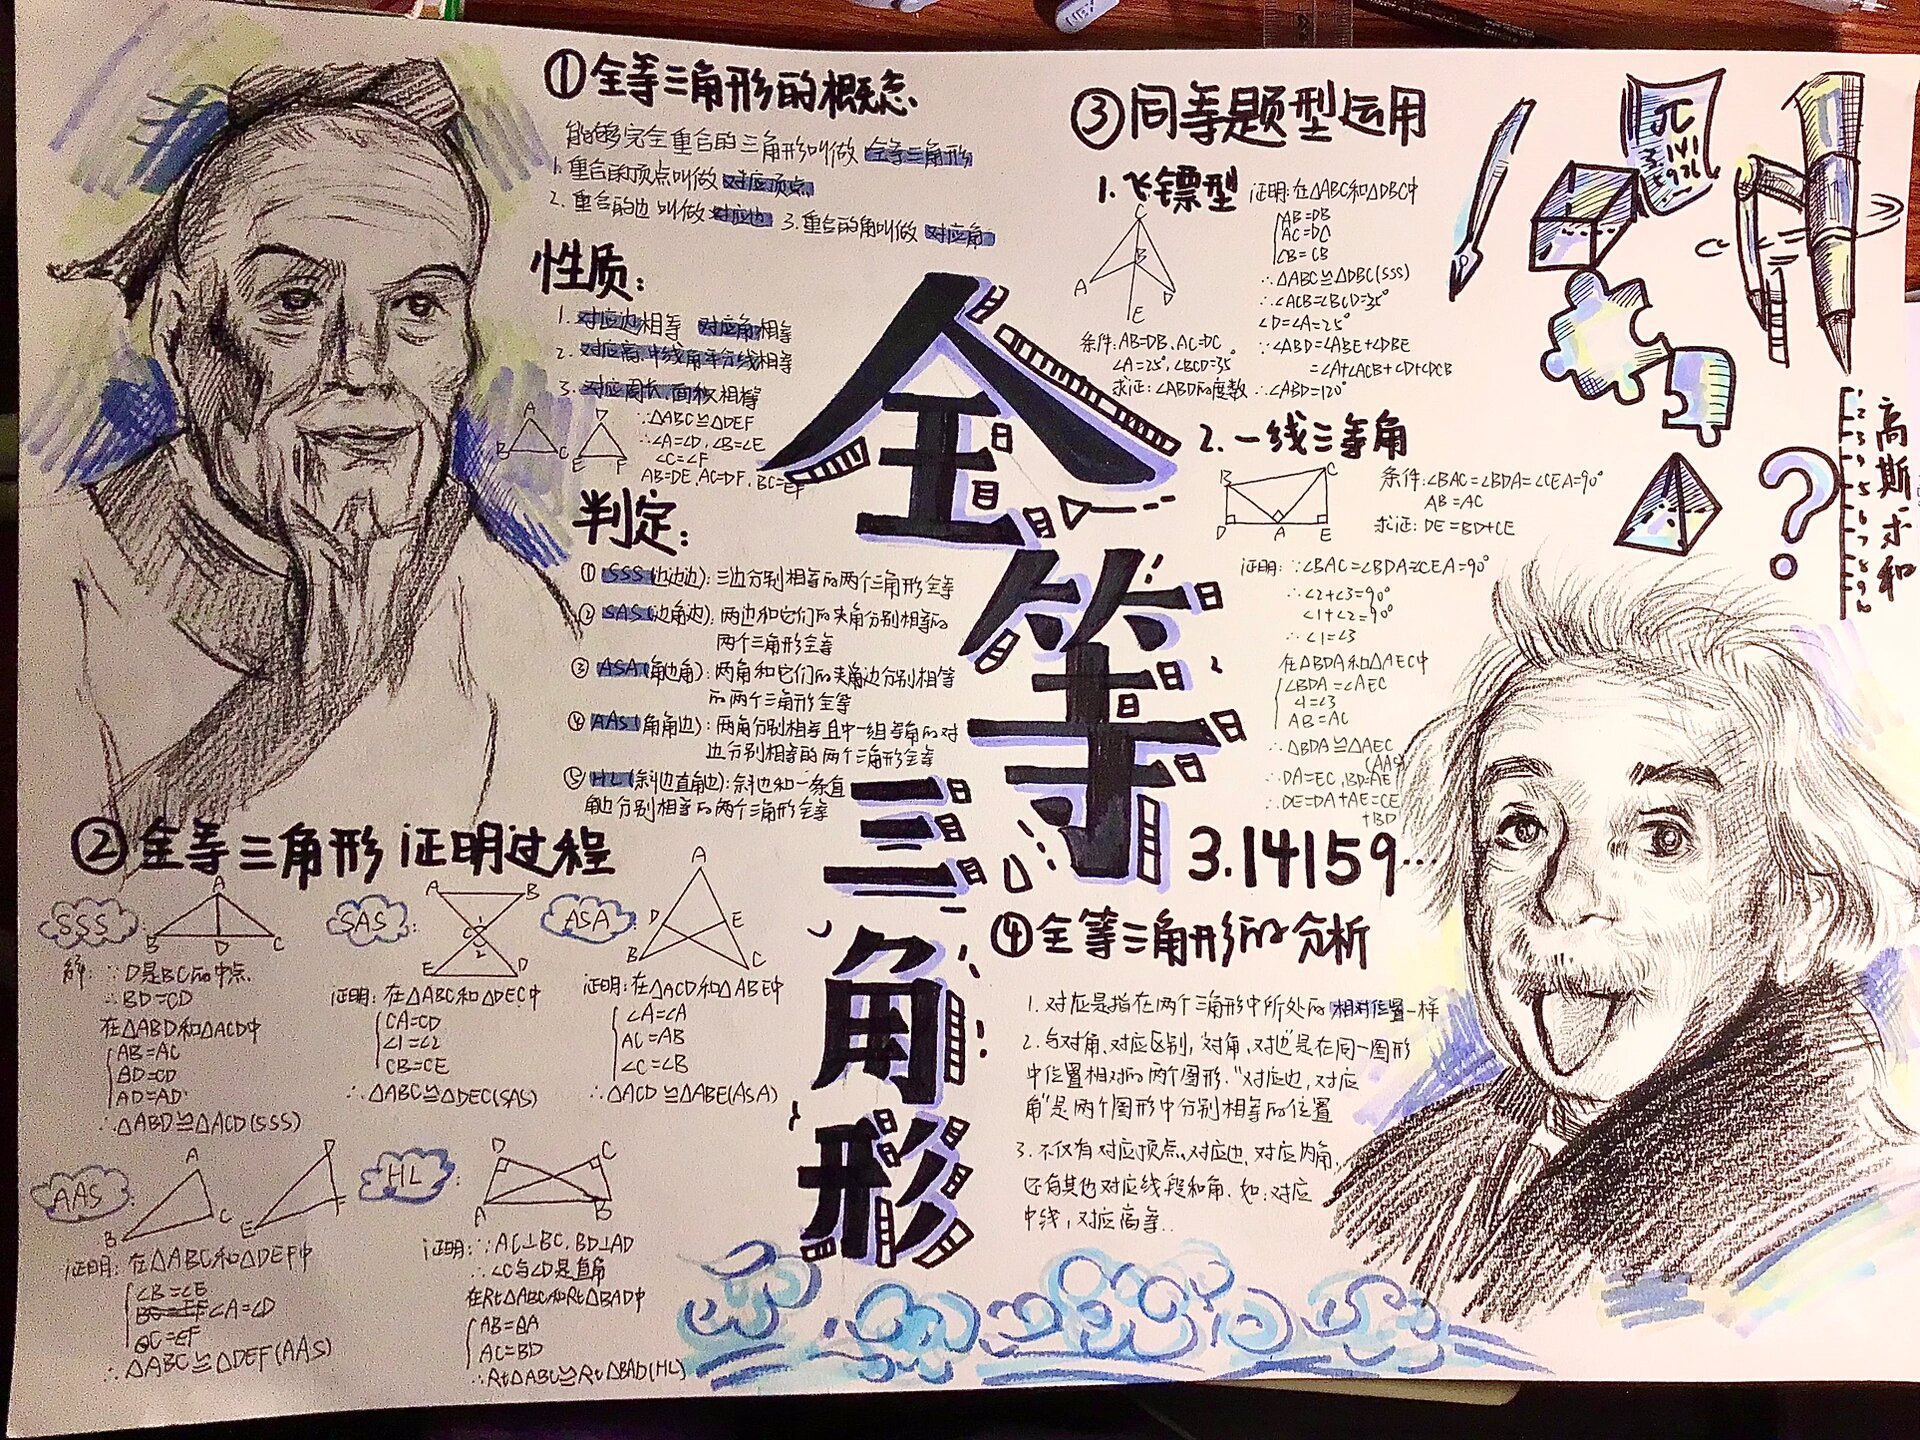 ①全等三角形的概念
能够完全重合的三角形叫做 全等三角形
1.重合的顶点叫做 对应顶点
2.重合的边叫做 对应边 3.重合的角叫做 对应角
性质:
1.对应边相等 对应角相等
2.对应高.中线角平分线相等
3.对应周长.面积相等
A D
B C E F
∵△ABC≌△DEF
∴∠A=∠D,∠B=∠E
∠C=∠F
AB=DE,AC=DF,BC=EF
判定:
①SSS(边边边):三边分别相等的两个三角形全等
②SAS(边角边):两边和它们的夹角分别相等的
两个三角形全等
③ASA(角边角):两角和它们的夹角边分别相等
的两个三角形全等
④AAS(角角边):两角分别相等且中一组等角的对
边分别相等的两个三角形全等
⑤HL(斜边直角边):斜边和一条直
角边分别相等的两个三角形全等
②全等三角形证明过程
SSS:
A
B D C
解:∵D是BC的中点
∴BD=CD
在△ABD和△ACD中
AB=AC
BD=CD
AD=AD
∴△ABD≌△ACD(SSS)
SAS:
A B
1
C
2
E D
证明:在△ABC和△DEC中
CA=CD
∠1=∠2
CB=CE
∴△ABC≌△DEC(SAS)
ASA:
A
D E
B C
证明:在△ACD和△ABE中
∠A=∠A
AC=AB
∠C=∠B
∴△ACD≌△ABE(ASA)
AAS:
A D
C F
B E
证明:在△ABC和△DEF中
∠B=∠E
∠A=∠D
∴△ABC≌△DEF(AAS)
HL:
D C
A B
证明:∵AC⊥BC,BD⊥AD
∴∠C与∠D是直角
在Rt△ABC和Rt△BAD中
AB=BA
AC=BD
∴Rt△ABC≌Rt△BAD(HL)
全等三角形
③同等题型运用
1.飞镖型
C
B
A D
E
条件:AB=DB,AC=DC
∠A=25°,∠BCD=35°
求证:∠ABD的度数
证明:在△ABC和△DBC中
AB=DB
AC=DC
CB=CB
∴△ABC≌△DBC(SSS)
∴∠ACB=∠BCD=35°
∠D=∠A=25°
∵∠ABD=∠ABE+∠DBE
=∠A+∠ACB+∠D+∠DCB
∴∠ABD=120°
2.一线三等角
B C
D A E
条件:∠BAC=∠BDA=∠CEA=90°
AB=AC
求证:DE=BD+CE
证明:∵∠BAC=∠BDA=∠CEA=90°
∴∠2+∠3=90°
∠1+∠2=90°
∴∠1=∠3
在△BDA和△AEC中
∠BDA=∠AEC
∠1=∠3
AB=AC
∴△BDA≌△AEC
(AAS)
∴DA=EC,BD=AE
∴DE=DA+AE=CE
+BD
3.14159…
④全等三角形的分析
1.对应是指在两个三角形中所处的相对位置一样
2.与对角、对应区别,“对角、对边”是在同一图形
中位置相对的两个图形.“对应边,对应
角”是两个图形中分别相等的位置
3.不仅有对应顶点,对应边,对应内角,
还有其他对应线段和角.如:对应
中线,对应高等..
π
3.141
?
高斯求和